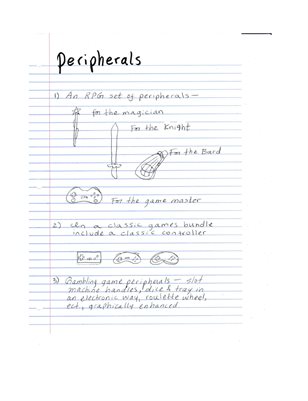 Peripherals
1) An RPG set of peripherals —
for the magician
For the Knight
For the Bard
For the game master
2) In a classic games bundle
include a classic controller
3) Gambling game peripherals — slot
machine handles, dice & tray in
an electronic way, roulette wheel,
ect, graphically enhanced